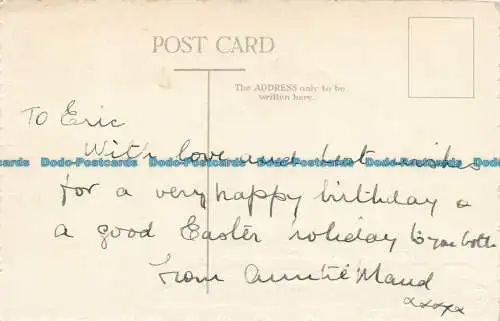 POST CARD
The ADDRESS only to be
written here.
To Eric
With love and best wishes
Dodo-Postcards Dodo-Postcards Dodo-Postcards Dodo-Postcards
for a very happy birthday &
a good Easter holiday to you both
From Auntie Maud
xxxx